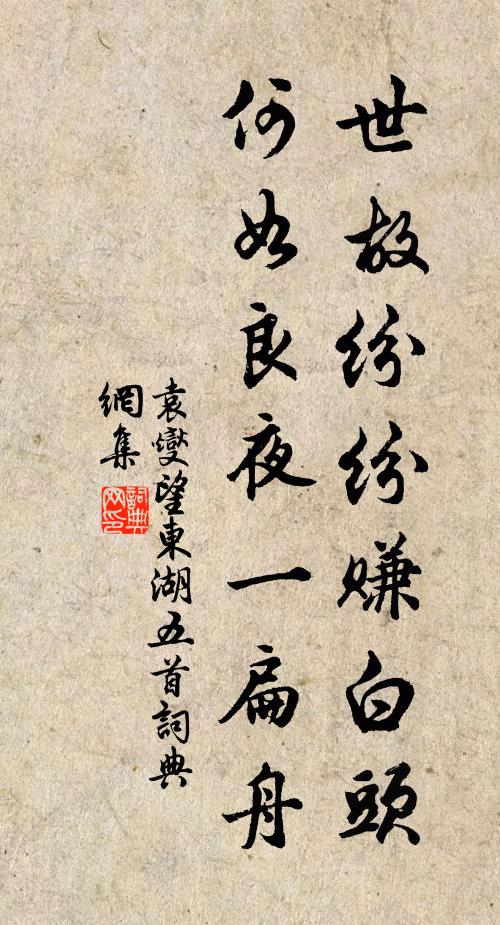 世故紛紛賺白頭
何如良夜一扁舟
袁燮望東湖五首詞典
網集
詞典
网印